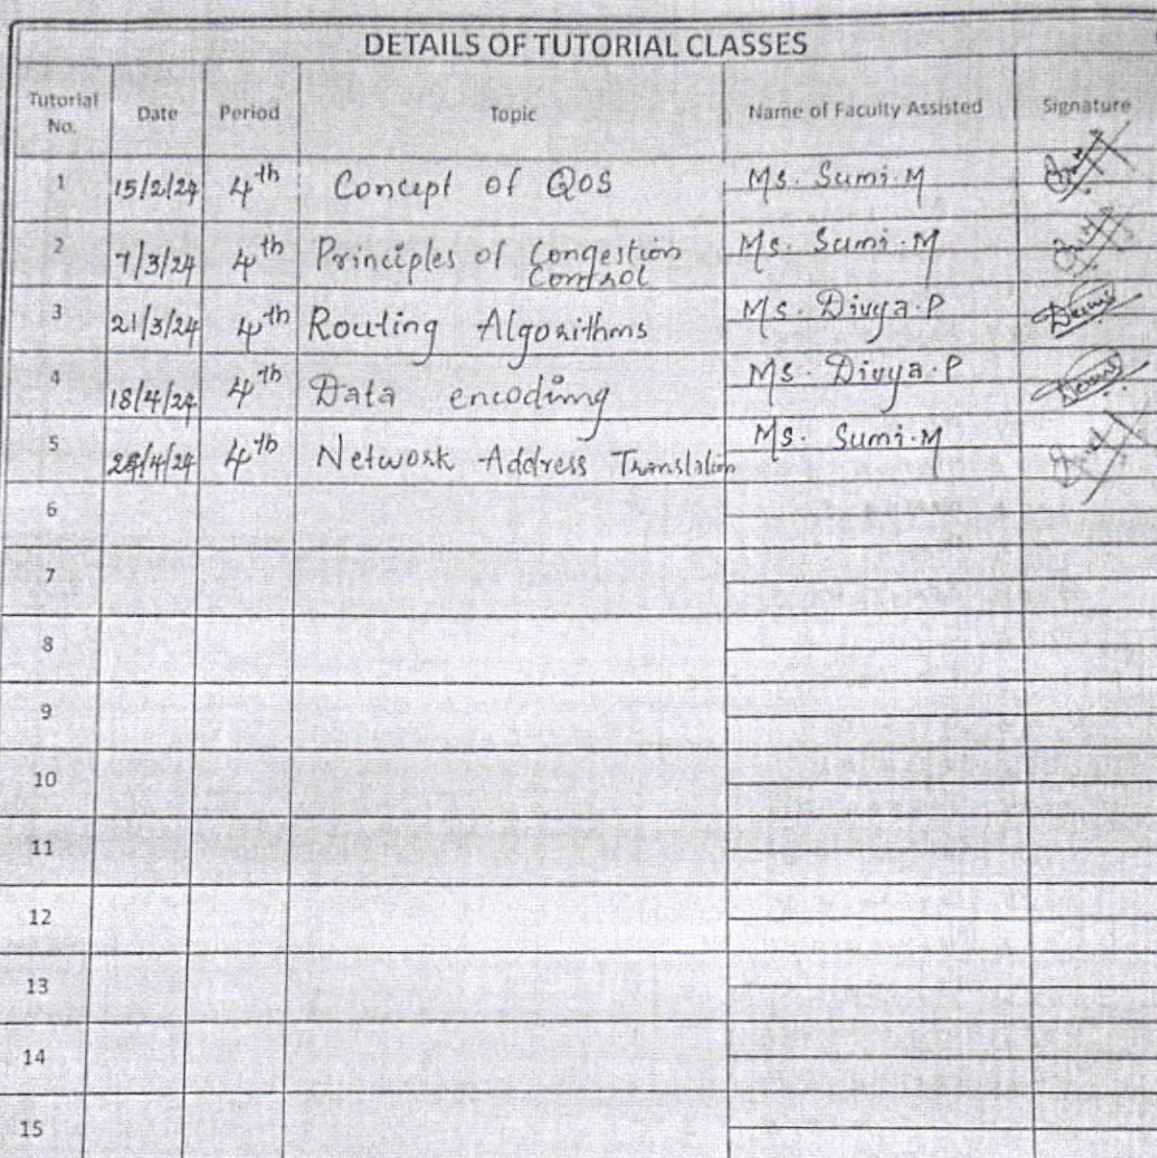 DETAILS OF TUTORIAL CLASSES
Tutorial No. Date Period Topic Name of Faculty Assisted Signature
1 15/2/24 4th Concept of QoS Ms. Sumi.M
2 7/3/24 4th Principles of Congestion Control Ms. Sumi.M
3 21/3/24 4th Routing Algorithms Ms. Divya.P
4 18/4/24 4th Data encoding Ms. Divya.P
5 4th Network Address Translation Ms. Sumi.M
6
7
8
9
10
11
12
13
14
15